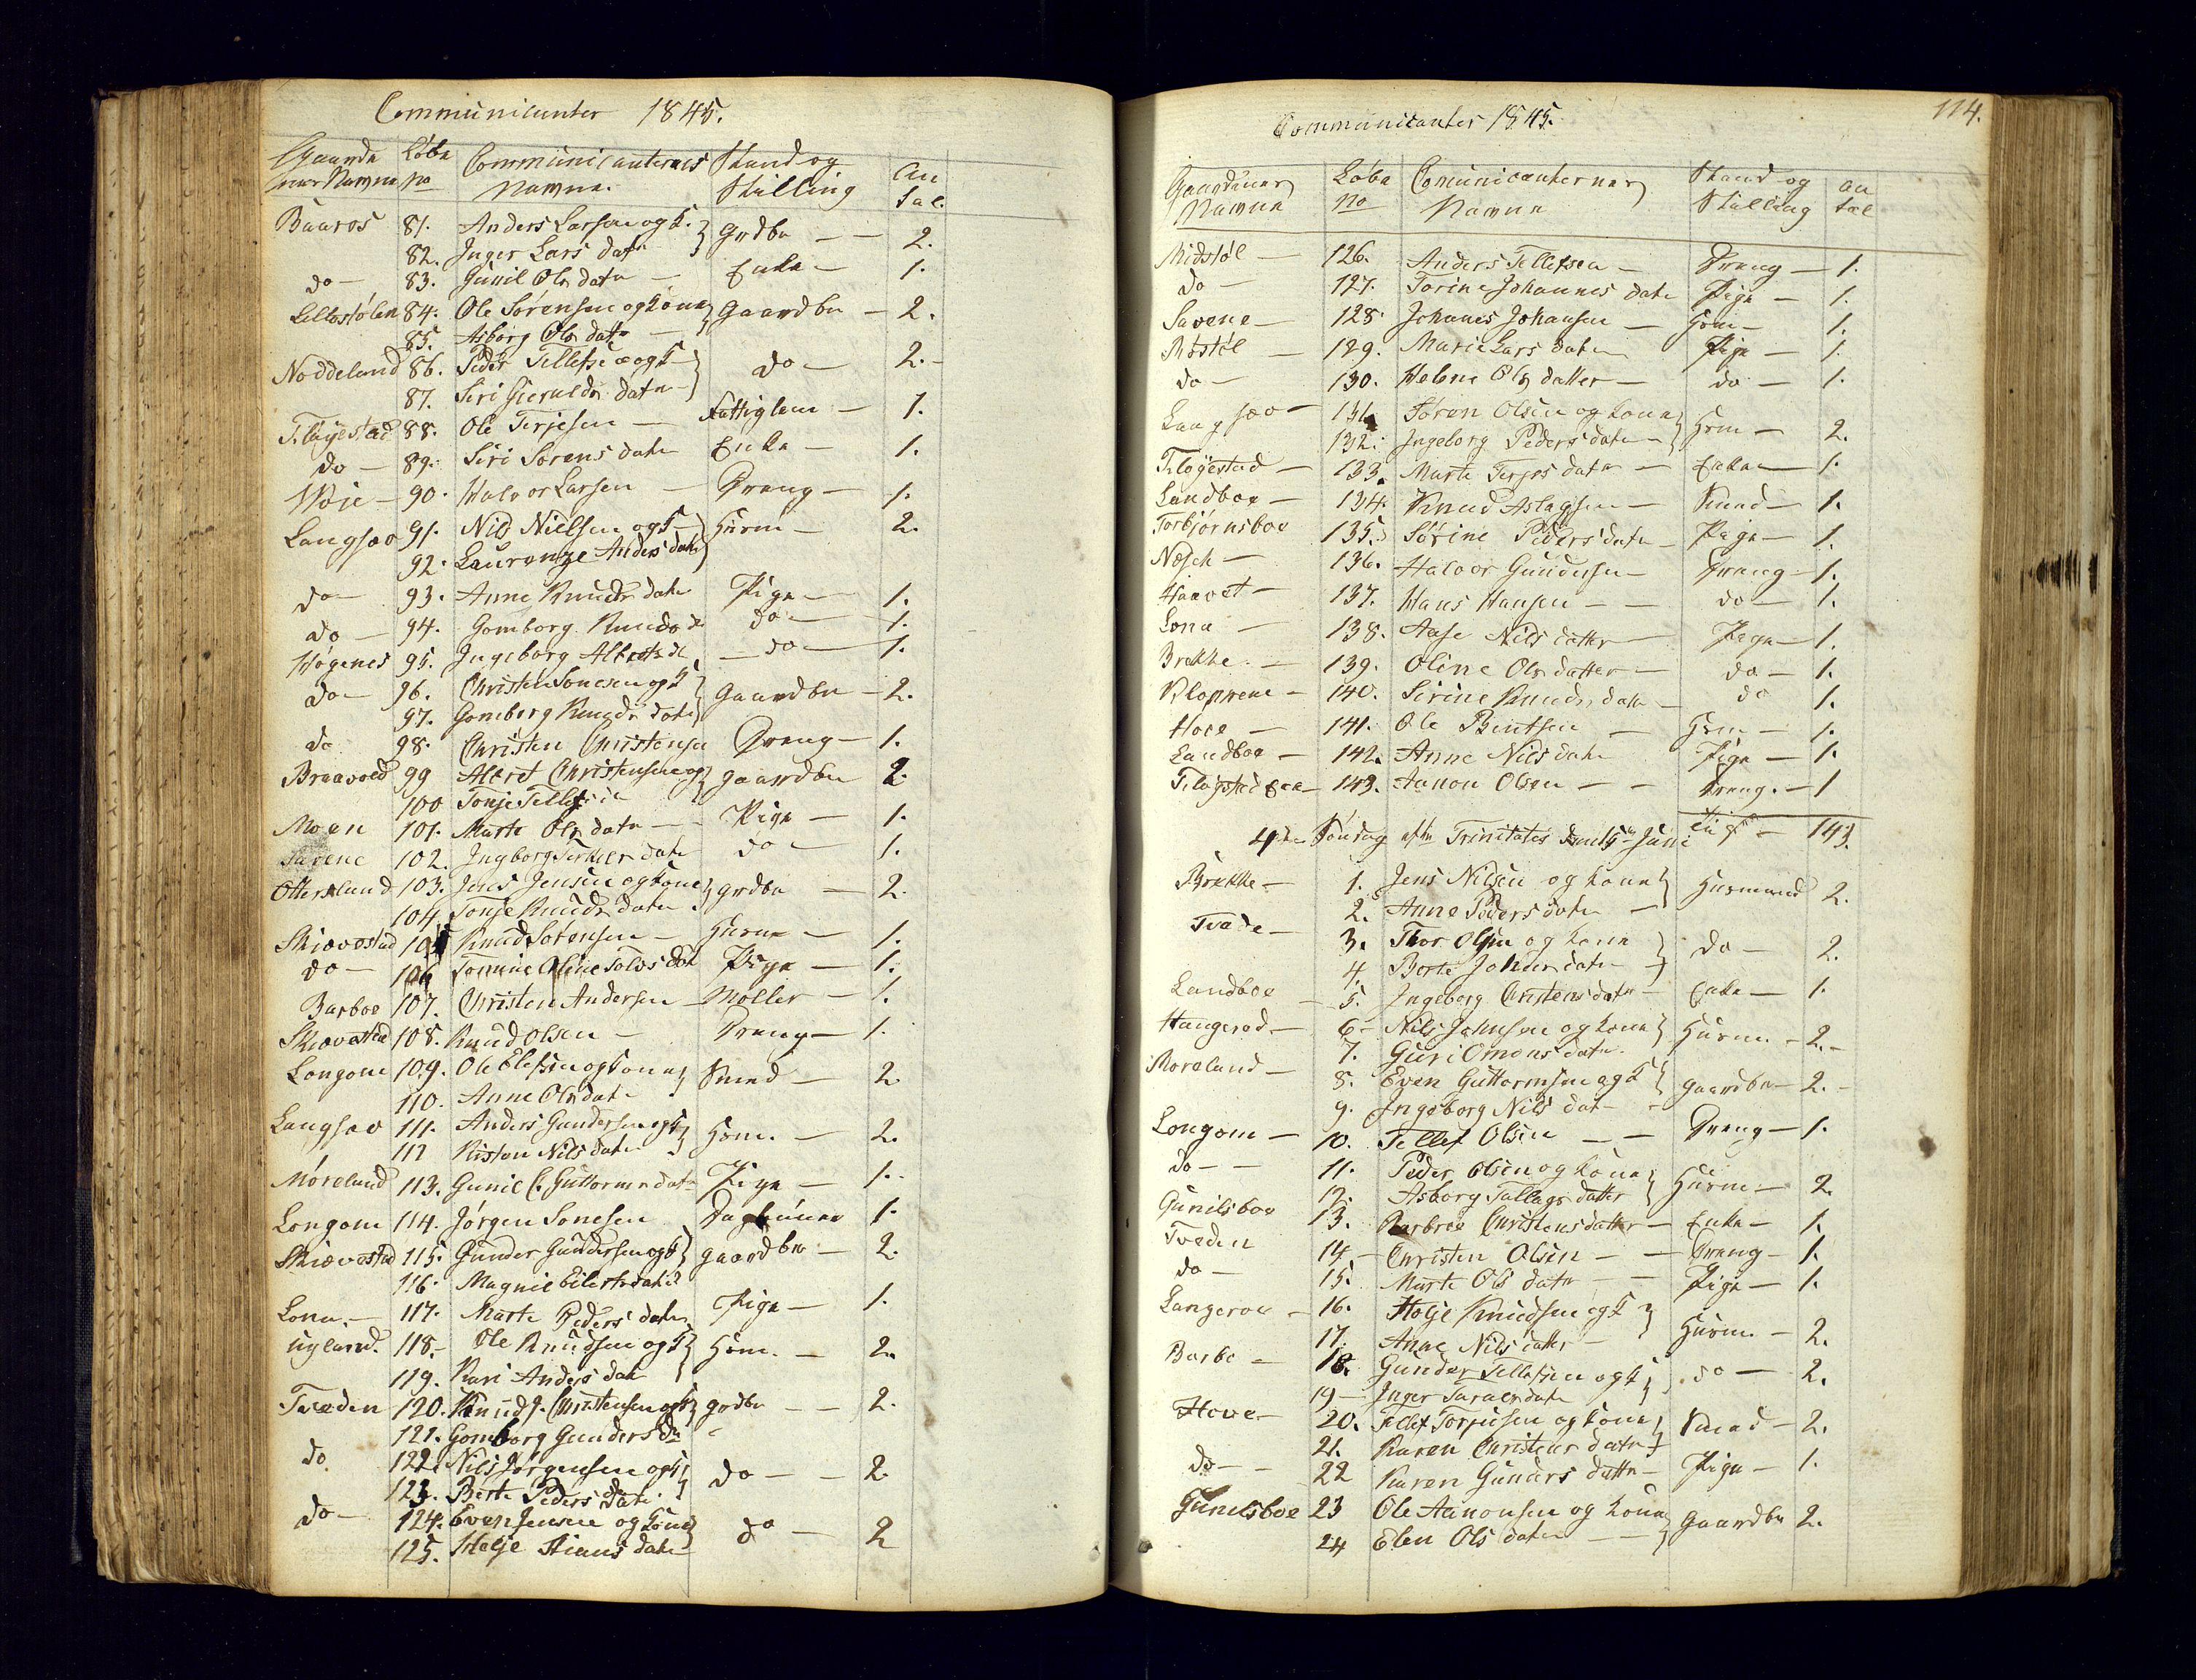 Communicanter 1845.
Gaarde Løbe Communicanternes Stand og An
nes Navne No Navne. Stilling tal.
Baaros 81. Anders Larsen og K. Grdbr — 2.
82. Inger Lars datr
do — 83. Gunil Ols datr — Enke — 1.
Lilleholen 84. Ole Sørensen og Kone Gaardbr — 2.
85. Asborg Ols datr —
Noddeland 86. Peder Tellefsen og K do — 2. —
87. Siri Gieruldsdatr —
Fløyestad 88. Ole Terjesen — Fattiglem — 1.
do — 89. Siri Sørens datr Enke — 1.
Weje — 90. Halvor Larsen — Dreng — 1.
Langsæo 91. Nils Nielsen og K — Husm — 2.
92. Laurentze Anders datr
do — 93. Anne Knuds datr Pige — 1.
do — 94. Gomborg Knuds d do — 1.
Høgenes 95. Ingeborg Albrets d — do — 1.
do — 96. Christen Sonesen og K Gaardbr — 2.
97. Gomborg Knuds datr
do 98. Christen Christensen Dreng — 1.
Braavold 99 Albret Christensen og gaardbr 2.
100 Tonje Tellefs d
Moen 101. Marte Ols datr — Pige — 1.
Savene 102. Ingborg Terkels datr do — 1.
Otterslund 103. Jens Jensen og Kone grdbr — 2.
104. Tonje Knuds datr
Skiævestad 105 Knud Sørensen — Husm — 1.
do — 106 Tomine Oline Talvs dat Pige — 1.
Barboe 107. Christen Andersen — Møller — 1.
Skiævestad 108. Knud Olsen — Dreng — 1.
Longom 109. Ole Elefsen og Kone Smed — 2.
110. Anne Ols dat
Langsæo 111. Anders Gundersen og K Hsm. — 2.
112 Kisten Nils datr
Møreland 113. Gunil C. Guttorms dat Pige — 1. .
Longom 114. Jørgen Sonesen Daglønner 1.
Skiævestad 115. Gunder Gundersen og K gaardbr — 2.
116. Magnil Eilerts datr
Lona. — 117. Marte Peders datr Pige — 1.
Ugland. 118. — Ole Knudsen og K Hsm. — 2.
119. Kari Anders datr
Tveden 120. Knud J. Christensen og K grdbr — — 2.
121. Gomborg Gunders dr
do 122. Nils Jørgensen og K do — — 2.
123. Berte Peders datr
do — 124. Even Jensen og Kone do — 2
125. Helje Stians datr
Communicanter 1845. 114.
Gaardenes Løbe Comunicanternes Stand og An
Navne No Navne Stilling tal
Midstøl — 126. Anders Tellefsen — Dreng — 1.
do — 127. Torine Johannes datr Pige — 1.
Savene — 128. Johanes Johansen — Hsm — 1.
Røstøl — 129. Marie Lars datr Pige — 1.
do — 130. Helene Ols datter — do — 1.
Langsæo — 131. Søren Olsen og Kone Hsm — 2.
132. Ingeborg Peders datr —
Fløyestad — 133. Marte Terjes datr — Enke — 1.
Landboe — 134. Knud Aslagsen — Smed — 1.
Torbjørnsboe 135. Sørine Peders datr — Pige — 1.
Næsch — 136. Halvor Gundersen — Dreng — 1.
Haavet — 137. Hans Hansen — — do — 1.
Lona — 138. Aase Nils datter — Pige — 1.
Brekke. — 139. Oline Ols datter — do — 1.
Kloppene — 140. Sirine Knuds datr — do 1.
Hove — 141. Ole Bentsen — Hsm — 1.
Landboe — 142. Anne Nils datr Pige — 1.
Fløystad Eie — 143. Aanon Olsen — — Dreng. — 1
4de Søndag efter Trinitatis den 15de Juni — 143.
Brekke — 1. Jens Nilsen og Kone Husmand 2.
2. Anne Peders datr —
Tvede — 3. Thor Olsen og Kone do — 2.
4. Berte Johnes datr —
Landboe — 5. Ingeborg Cristens datr — Enke — 1.
Haugerød — 6 — Nils Johnsen og Kone Husm. — 2. —
7. Guri Omons datr.
Moreland — 8. Even Guttormsen og K gaardbr — 2. —
9. Ingeborg Nils dat —
Longom — 10. Tellef Olsen — — Dreng — 1.
do — — 11. Peder Olsen og Kone Husm — 2.
12. Asborg Tallags datter
Gunilsboe 13. Barbroe Christensdatter — Enke — 1.
Tveden 14 — Christen Olsen — — Dreng — 1.
do — 15. Marte Ols datr — — Pige — 1.
Langeroe — 16. Holje Knudsen og K Husm. — 2.
17. Anne Nils datter —
Barbo — 18. Gunder Tellefsen og K do — 2.
19 — Inger Taraldsdatr
Hove — 20. Tellef Torjussen og Kone Smed — 2.
21. Karen Christens datr
do — — 22 Karen Gunders datter — Pige — 1.
Gunilsboe 23 Ole Aanonsen og Kone Gaardbr 2.
24 Elen Ols datr — —